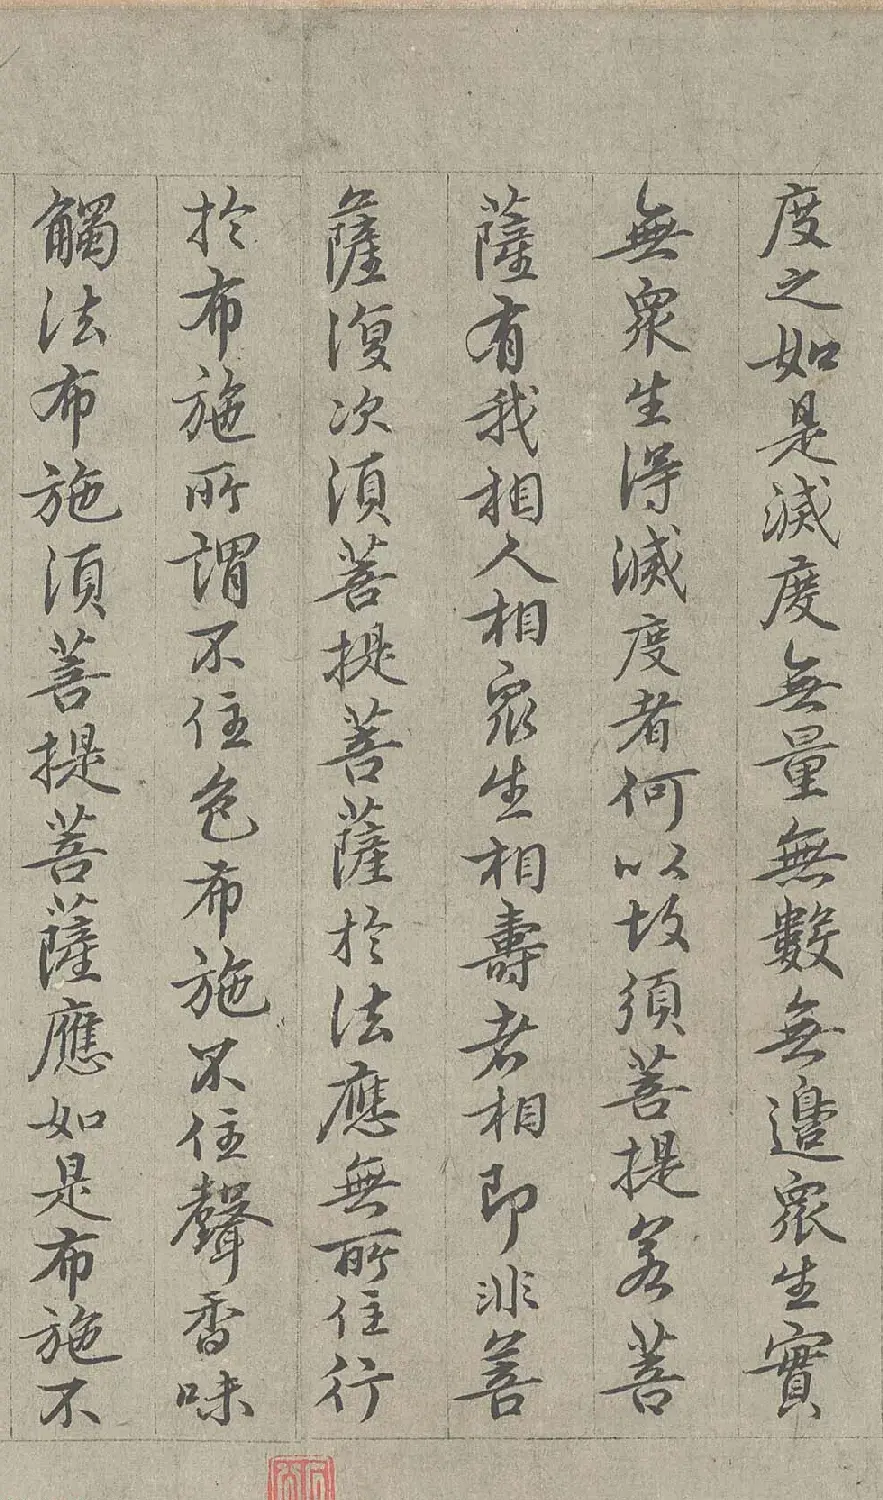 度之如是滅度無量無數無邊眾生實
無眾生得滅度者何以故須菩提若菩
薩有我相人相眾生相壽者相即非菩
薩復次須菩提菩薩於法應無所住行
於布施所謂不住色布施不住聲香味
觸法布施須菩提菩薩應如是布施不